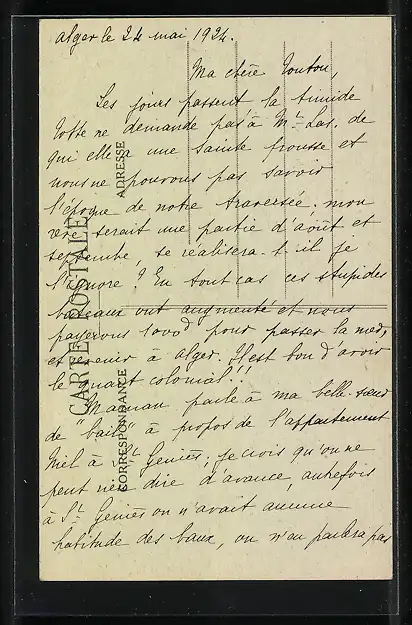 Alger le 24 mai 1924.
Ma chère Toutou,
Les jours passent la timide
Totte ne demande pas à Mr Las. de
qui elle a une sainte frousse et
nous ne pouvons pas savoir
l'époque de notre traversée; mon
rêve serait une partie d'août et
septembre, se réalisera-t-il je
l'ignore? En tout cas ces stupides
bateaux ont augmenté et nous
payerons 1000d pour passer la mer,
et revenir à Alger. Il est bon d'avoir
le quart colonial!!
Maman parle à ma belle-soeur
de "bail" à propos de l'appartement
Miel à St Geniès; je crois qu'on ne
peut rien dire d'avance, autrefois
à St Geniès on n'avait aucune
habitude des baux, on n'en parlera pas
CARTE POSTALE
ADRESSE
CORRESPONDANCE